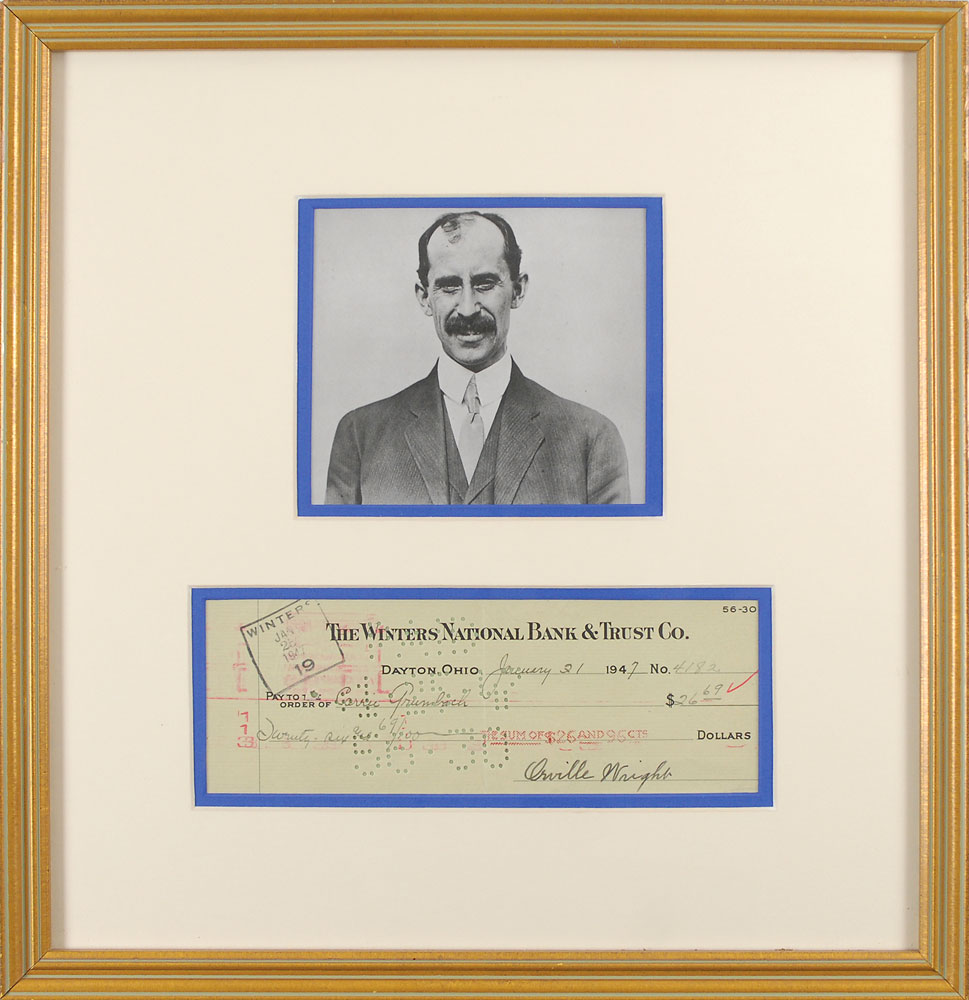 56-30
WINTERS
19
THE WINTERS NATIONAL BANK & TRUST CO.
DAYTON, OHIO January 21 1947 No. 4182
PAY TO THE ORDER OF Carrie Grumbach $26 69
Twenty-six and 69/100 THE SUM OF $26 AND 96 CTS DOLLARS
Orville Wright